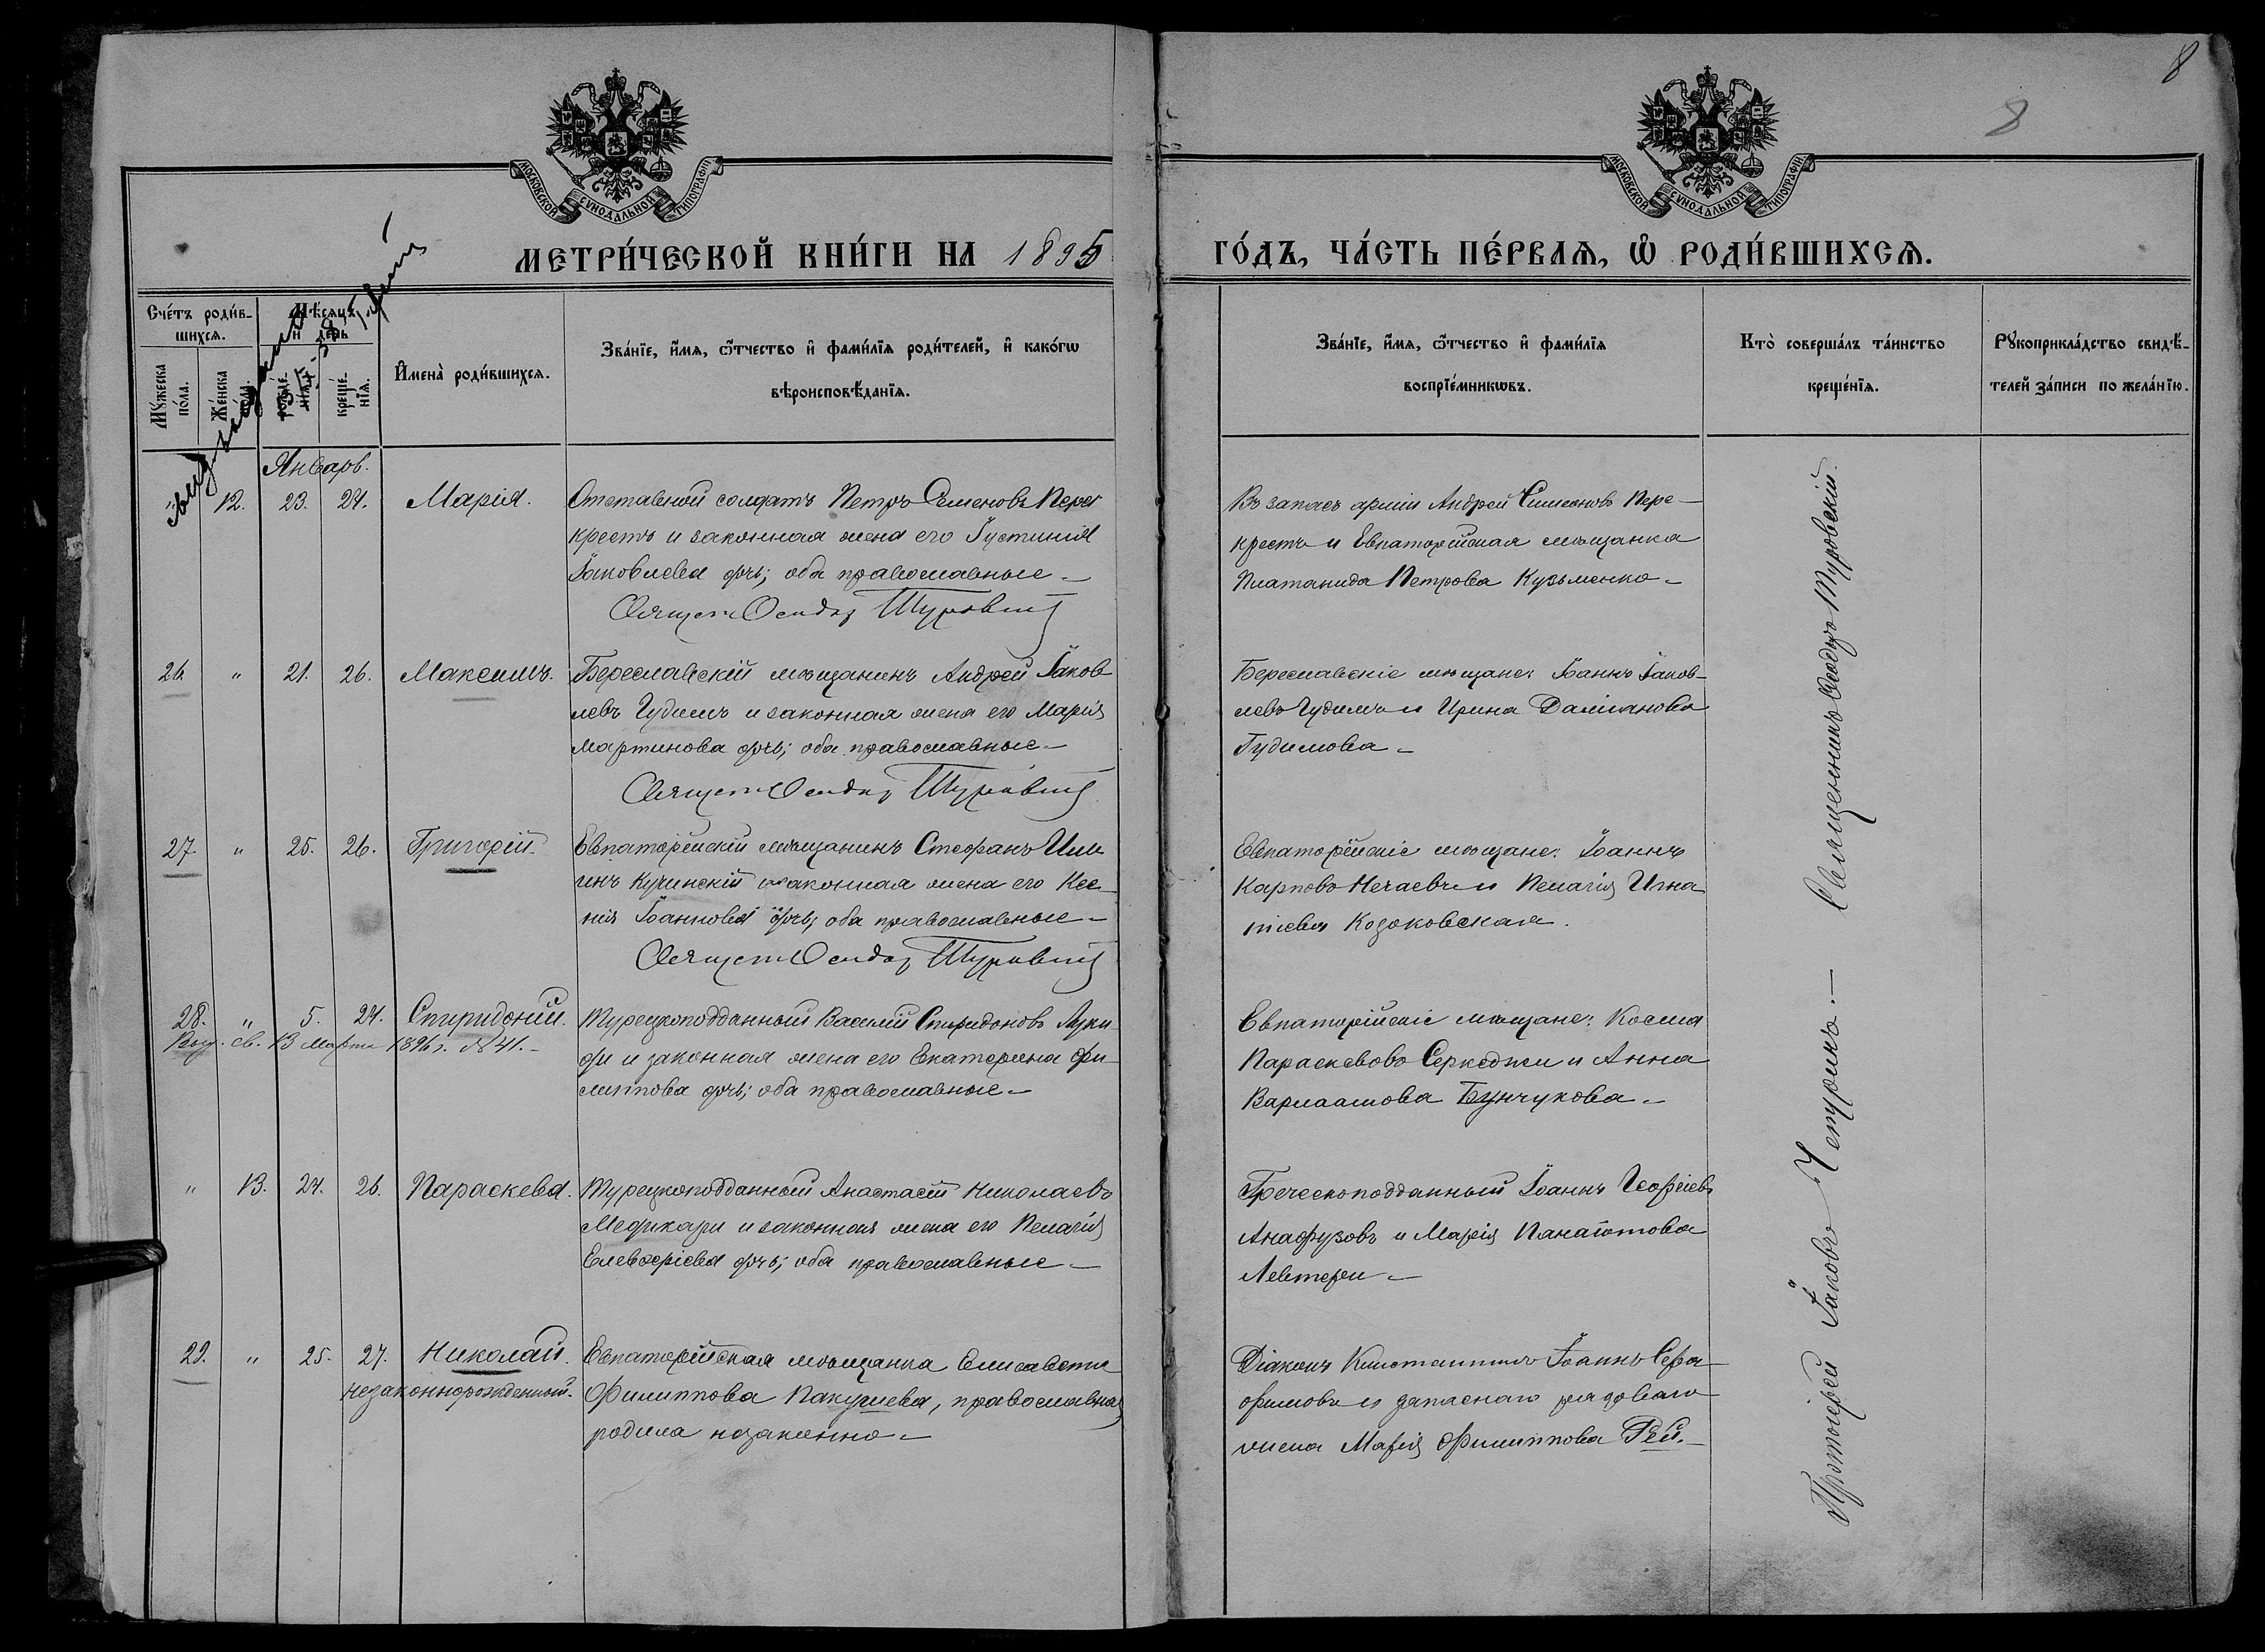 8
8
МОСКОВСКОЙ СѴНОДАЛЬНОЙ ТИПОГРАФІИ
МОСКОВСКОЙ СѴНОДАЛЬНОЙ ТИПОГРАФІИ
МЕТРИ́ЧЕСКОЙ КНИ́ГИ НА 1895 ГО́ДЪ, ЧА́СТЬ ПЕ́РВАѦ, Ѡ РОДИ́ВШИХСѦ.
Сче́тъ роди́в-
шихсѧ.
Мꙋ́жеска
по́ла.
Же́нска
по́ла.
Мѣ́сѧцъ
и҆ день
рожде́-
нїѧ.
креще́-
нїѧ.
И҆мена̀ роди́вшихсѧ.
Зва́нїе, и҆́мѧ, ѻ҆́тчество и҆ фами́лїѧ роди́телей, и҆ како́гѡ
вѣроисповѣ́данїѧ.
Зва́нїе, и҆́мѧ, ѻ҆́тчество и҆ фами́лїѧ
воспрїе́мникѡвъ.
Кто̀ соверша́лъ та́инство
креще́нїѧ.
Рꙋкоприкла́дство свидѣ́-
телей за́писи по жела́нїю.
Январь.
" 12. 23. 24. Марія.
Отставной солдатъ Петръ Семеновъ Пере
крестъ и законная жена его Іустинія
Іаковлева дочь; оба православные –
Священ Туровскій
Въ запасѣ арміи Андрей Симеоновъ Пере-
крестъ и Евпаторійская мѣщанка
Платанида Петрова Кузьменко –
26. " 21. 26. Максимъ.
Береславскій мѣщанинъ Андрей Іаков
левъ Гудимъ и законная жена его Марія
Мартинова дочь; оба православные –
Священ Туровскій
Береславскіе мѣщане: Іоаннъ Іаков-
левъ Гудимъ и Ирина Даміанова
Гудимова –
27. " 25. 26. Григорій.
Евпаторійскій мѣщанинъ Стефанъ
Кучинскій и законная жена его Ксе-
нія Іоаннова дочь; оба православные –
Священ Туровскій
Евпаторійскіе мѣщане: Іоаннъ
Карповъ Нечаевъ и Пелагія Игна
тіева Козаковская.
28. " 5. 24. Спиридоній.
Выд. св. 13 Марта 1896 г. № 41. –
Турецкоподданный Василій Спиридоновъ
и законная жена его Екатерина Фи-
липпова дочь; оба православные –
Евпаторійскіе мѣщане: Косма
Параскевовъ Серкеджи и Анна
Варлаамова Бунчукова. –
" 13. 24. 26. Параскева.
Турецкоподданный Анастасій Николаевъ
и законная жена его Пелагія
Елевѳеріева дочь; оба православные –
Греческоподданный Іоаннъ Георгіевъ
Анафузовъ и Марія Панаіотова
Левтери –
29. " 25. 27. Николай.
незаконнорожденный.
Евпаторійская мѣщанка Елисавета
Филиппова, православная
родила незаконно –
Діаконъ Константинъ Іоанновъ Сера-
фимовъ и запаснаго рядоваго
жена Марія Филиппова Рей. –
Протоіерей Іаковъ Чепуринъ. – Священникъ Ѳеодоръ Туровскій.